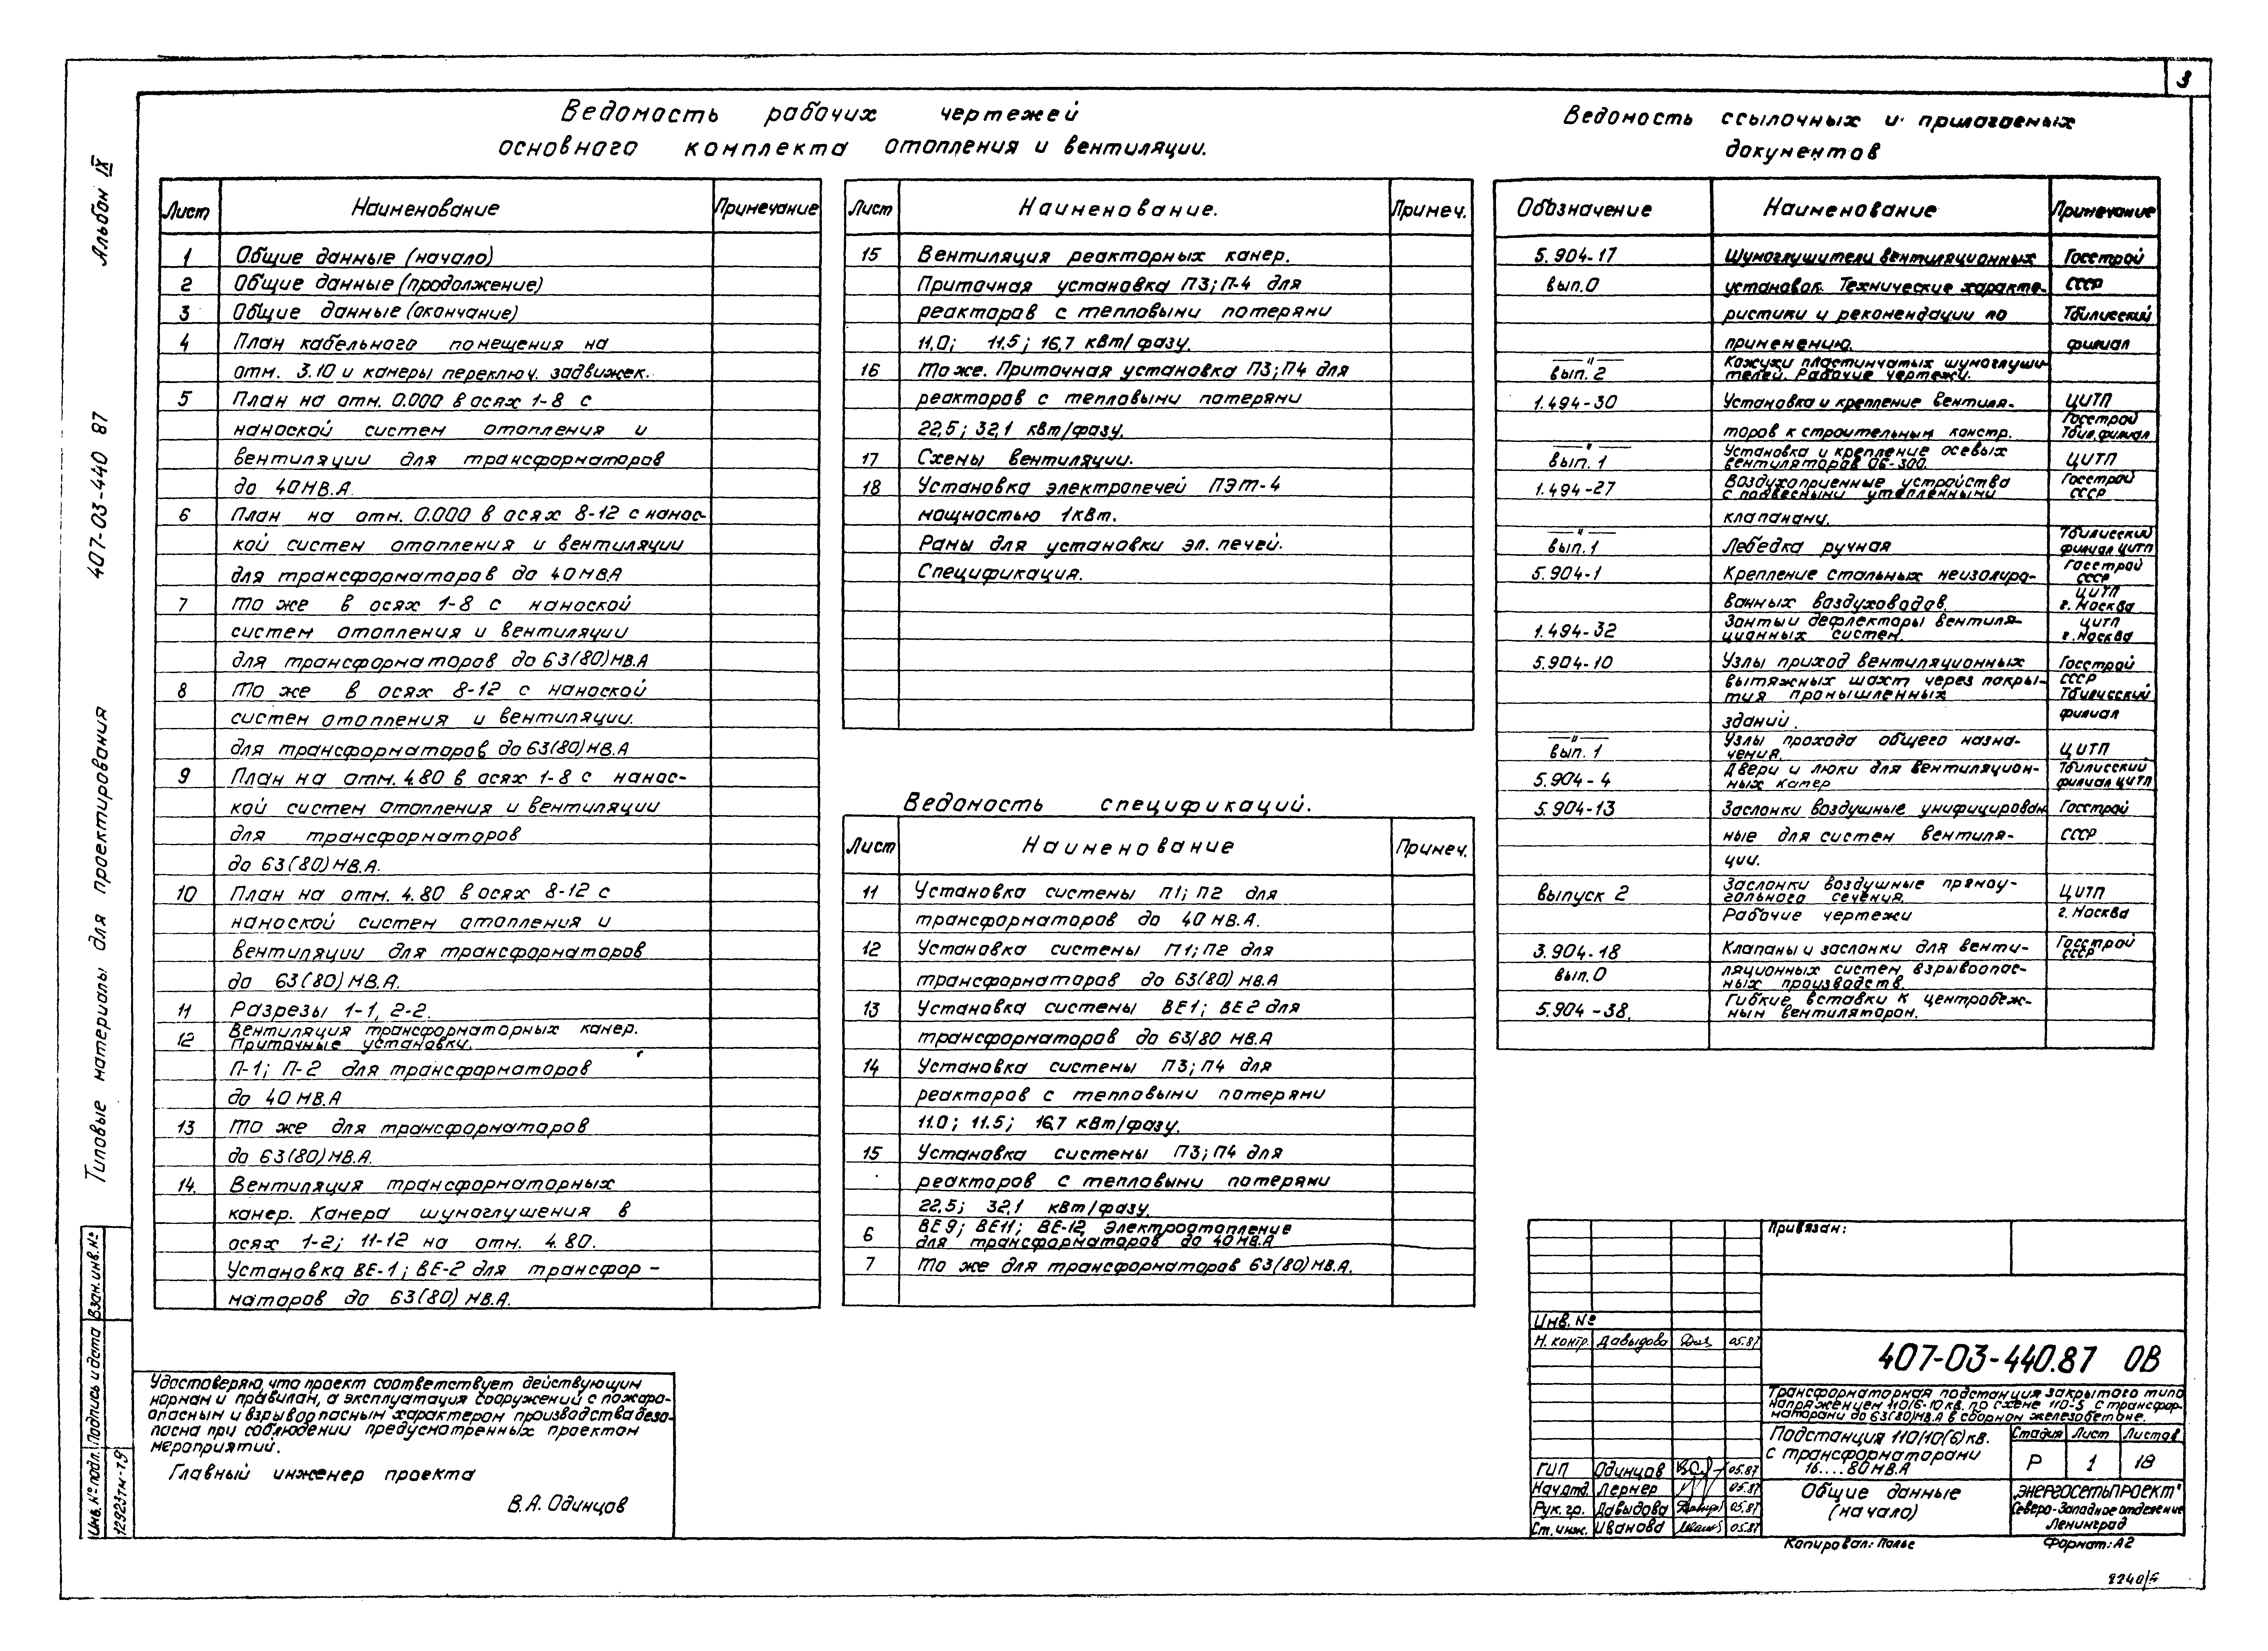 3
Ведомость рабочих чертежей
основного комплекта отопления и вентиляции.
Лист Наименование Примечание
1 Общие данные (начало)
2 Общие данные (продолжение)
3 Общие данные (окончание)
4 План кабельного помещения на
отм. 3.10 и камеры переключ. задвижек.
5 План на отм. 0.000 в осях 1-8 с
наноской систем отопления и
вентиляции для трансформаторов
до 40 МВ.А.
6 План на отм. 0.000 в осях 8-12 с нанос-
кой систем отопления и вентиляции
для трансформаторов до 40 МВ.А
7 То же в осях 1-8 с наноской
систем отопления и вентиляции
для трансформаторов до 63(80) МВ.А
8 То же в осях 8-12 с наноской
систем отопления и вентиляции.
для трансформаторов до 63(80) МВ.А
9 План на отм. 4.80 в осях 1-8 с нанос-
кой систем отопления и вентиляции
для трансформаторов
до 63(80) МВ.А.
10 План на отм. 4.80 в осях 8-12 с
наноской систем отопления и
вентиляции для трансформаторов
до 63(80) МВ.А.
11 Разрезы 1-1, 2-2.
12 Вентиляция трансформаторных камер.
Приточные установки.
П-1; П-2 для трансформаторов
до 40 МВ.А
13 То же для трансформаторов
до 63(80) МВ.А.
14. Вентиляция трансформаторных
камер. Камера шумоглушения в
осях 1-2; 11-12 на отм. 4.80.
Установка ВЕ-1; ВЕ-2 для трансфор-
маторов до 63(80) МВ.А.
Лист Наименование. Примеч.
15 Вентиляция реакторных камер.
Приточная установка П3; П-4 для
реакторов с тепловыми потерями
11,0; 11.5; 16,7 кВт/фазу.
16 То же. Приточная установка П3; П4 для
реакторов с тепловыми потерями
22,5; 32,1 кВт/фазу.
17 Схемы вентиляции.
18 Установка электропечей ПЭТ-4
мощностью 1кВт.
Рамы для установки эл. печей.
Спецификация.
Ведомость спецификаций.
Лист Наименование Примеч.
11 Установка системы П1; П2 для
трансформаторов до 40 МВ.А.
12 Установка системы П1; П2 для
трансформаторов до 63(80) МВ.А
13 Установка системы ВЕ1; ВЕ2 для
трансформаторов до 63/80 МВ.А
14 Установка системы П3; П4 для
реакторов с тепловыми потерями
11.0; 11.5; 16,7 кВт/фазу.
15 Установка системы П3; П4 для
реакторов с тепловыми потерями
22,5; 32,1 кВт/фазу.
6 ВЕ9; ВЕ11; ВЕ-12, Электроотопление
для трансформаторов до 40 МВ.А
7 То же для трансформаторов 63(80) МВ.А.
Ведомость ссылочных и прилагаемых
документов
Обозначение Наименование Примечание
5.904-17 Шумоглушители вентиляционных Госстрой
вып.0 установок. Технические характе- СССР
ристики и рекомендации по Тбилисский
применению. филиал
—"—
вып. 2 Кожухи пластинчатых шумоглуши-
телей. Рабочие чертежи.
1.494-30 Установка и крепление вентиля- ЦИТП
торов к строительным констр. Госстрой
Тбил. филиал
—"—
вып. 1 Установка и крепление осевых
вентиляторов 06-300. ЦИТП
1.494-27 Воздухоприемные устройства Госстрой
с подвесными утепленными СССР
клапанами.
—"— Тбилисский
вып.1 Лебедка ручная филиал ЦИТП
5.904-1 Крепление стальных неизолиро- Госстрой
СССР
ванных воздуховодов. ЦИТП
г. Москва
1.494-32 Зонты и дефлекторы вентиля- ЦИТП
ционных систем. г. Москва
5.904-10 Узлы приход вентиляционных Госстрой
вытяжных шахт через покры- СССР
тия промышленных Тбилисский
зданий. филиал
—"—
вып. 1 Узлы прохода общего назна-
чения. ЦИТП
5.904-4 Двери и люки для вентиляцион- Тбилисский
ных камер филиал ЦИТП
5.904-13 Заслонки воздушные унифицирован Госстрой
ные для систем вентиля- СССР
ции.
выпуск 2 Заслонки воздушные прямоу-
гольного сечения. ЦИТП
Рабочие чертежи г. Москва
3.904-18 Клапаны и заслонки для венти- Госстрой
СССР
вып.0 ляционных систем взрывоопас-
ных производств.
5.904-38. Гибкие вставки к центробеж-
ным вентиляторам.
Типовые материалы для проектирования 407-03-440 87 Альбом IX
Инв. № подл. Подпись и дата Взам. инв. №
12923тм-т9
Удостоверяю, что проект соответствует действующим
нормам и правилам, а эксплуатация сооружений с пожаро-
опасным и взрывоопасным характером производства безо-
пасна при соблюдении предусмотренных проектом
мероприятий.
Главный инженер проекта
В.А. Одинцов
Привязан:
Инв. №
Н. контр. Давыдова 05.87
407-03-440.87 ОВ
Трансформаторная подстанция закрытого типа
напряжением 110/6-10 кВ. по схеме 110-5 с трансфор-
маторами до 63(80) МВ.А в сборном железобетоне.
Подстанция 110/10(6) кв.
с трансформаторами
16....80 МВ.А
Стадия Лист Листов
Р 1 18
ГИП Одинцов 05.87
Нач.отд. Лернер 05.87
Рук. гр. Давыдова 05.87
Ст. инж. Иванова 05.87
Общие данные
(начало)
"ЭНЕРГОСЕТЬПРОЕКТ"
Северо-Западное отделение
Ленинград
Копировал: Формат: А2